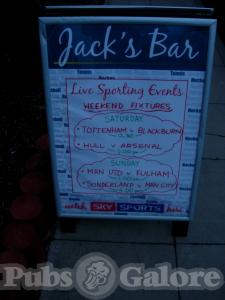 Jack's Bar
Tennis
Live Sporting Events
WEEKEND FIXTURES
SATURDAY
• TOTTENHAM v BLACKBURN
• HULL v ARSENAL
SUNDAY
• MAN UTD v FULHAM
• SUNDERLAND v MAN CITY
watch SKY SPORTS here
Pubs Galore